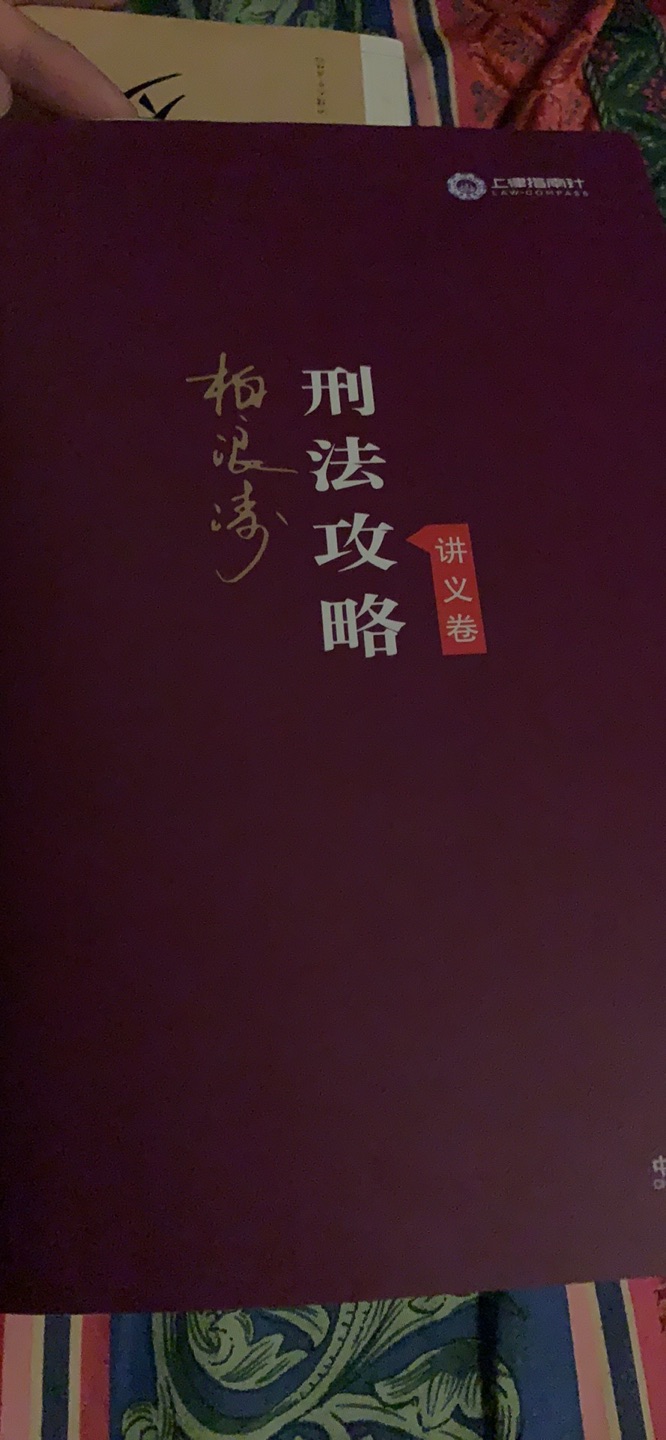 上律指南针
LAW-COMPASS
刑法攻略
讲义卷
柏浪涛